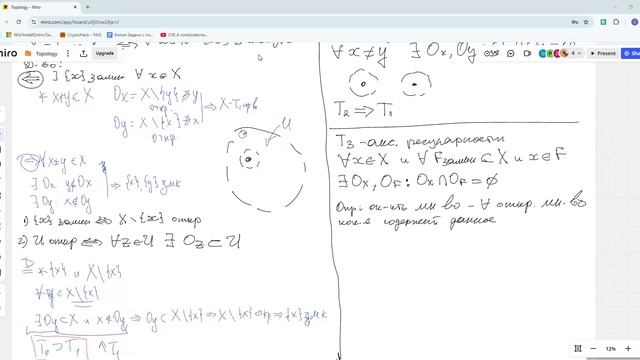 Topology - Miro
miro.com/app/board/uXjVkxw2Ajs=/
Wid/Install/Distro/Se...
CryptoHack – FAQ
Копия Задачи с по...
(4) A combinatoria...
miro
Topology
Upgrade
Present
D-во:
⇐ ] {x} замкн ∀ x∈X
∀ x≠y ⊂ X Ox = X\{y} ∌ y
откр.
Oy = X\{x} ∌ x
откр.
⇒ X-T₁ пр-во
U
⇒ ∀x≠y ∈ X
∃ Ox: y∉Ox
∃ Oy: x∉Oy
⇒ {x},{y} замк
1) {x} замкн ⇔ X\{x} откр
2) U откр ⇔ ∀z∈U ∃ Oz⊂U
D
* {x} и X\{x}
∀y∈X\{x}
∃ Oy⊂X и x∉Oy ⇒ Oy⊂X\{x} ⇒ X\{x} откр ⇒ {x} замк
T₀ ⊃ T₁
∀ x≠y ∃ Ox, Oy:
T₂ ⇒ T₁
T₃ - акс. регулярности
∀x∈X и ∀F замкн ⊂ X и x∉F
∃ Ox, OF : Ox∩OF = ∅
Опр: ок-ить мн-во - ∀ откр. мн-во
кот-е содержит данное
12%